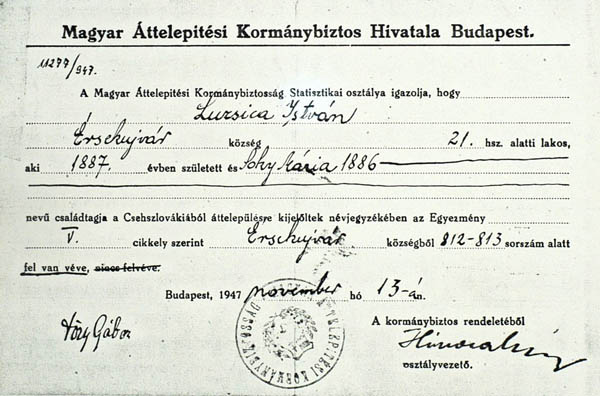 Magyar Áttelepitési Kormánybiztos Hivatala Budapest.
11277/947.
A Magyar Áttelepitési Kormánybiztosság Statisztikai osztálya igazolja, hogy
Luzsica István
Érsekujvár község 21. hsz. alatti lakos,
aki 1887. évben született és Soky Mária 1886
nevű családtagja a Csehszlovákiából áttelepülésre kijelöltek névjegyzékében az Egyezmény
V. cikkely szerint Érsekujvár községből 812-813 sorszám alatt
fel van véve, nincs felvéve.
Budapest, 1947 november hó 13-án.
A kormánybiztos rendeletéből
Gábor
osztályvezető.